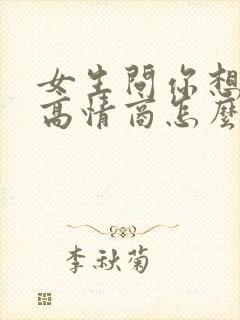 女生問你想
高情商怎麼
李秋菊